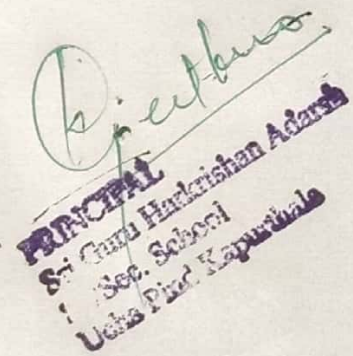 PRINCIPAL
Sri Guru Harkrishan Adarsh
Sec. School
Ucha Pind Kapurthala